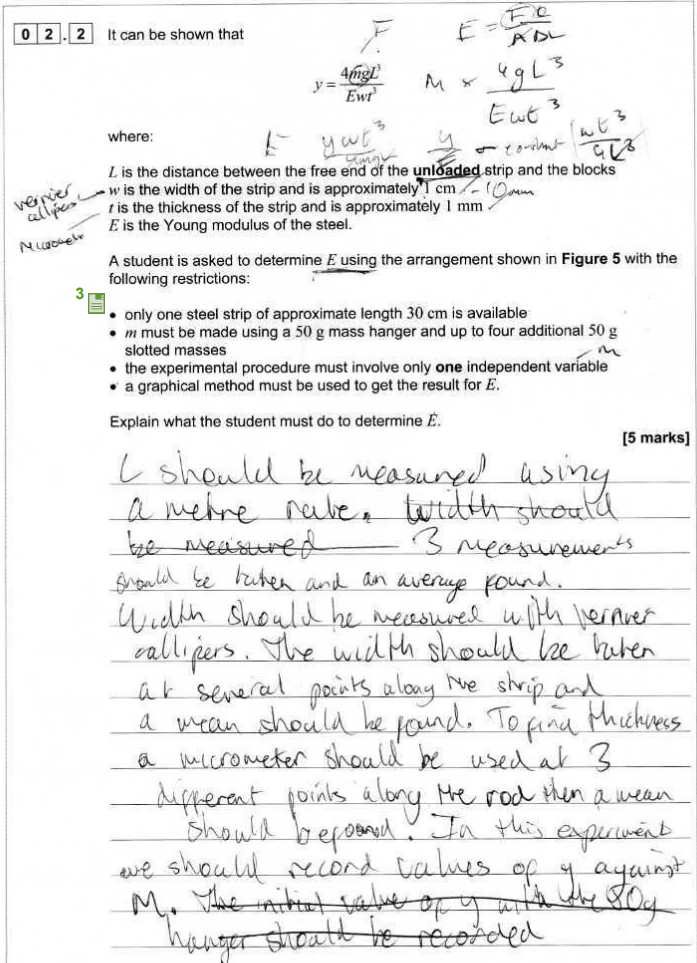 0 2 . 2 It can be shown that
F
E = Fe / A DL
y = 4mgL³ / Ewt³
M × 4gL³ / Ewt³
where:
E
ywt³
y / E
constant
wt³ / 4L³
L is the distance between the free end of the unloaded strip and the blocks
w is the width of the strip and is approximately 1 cm - 10mm
vernier
callipers
t is the thickness of the strip and is approximately 1 mm
E is the Young modulus of the steel.
A student is asked to determine E using the arrangement shown in Figure 5 with the
following restrictions:
3
• only one steel strip of approximate length 30 cm is available
• m must be made using a 50 g mass hanger and up to four additional 50 g
slotted masses
m
• the experimental procedure must involve only one independent variable
• a graphical method must be used to get the result for E.
Explain what the student must do to determine E.
[5 marks]
L should be measured using
a metre rule. Width should
be measured 3 measurements
should be taken and an average found.
Width should be measured with vernier
callipers. The width should be taken
at several points along the strip and
a mean should be found. To find thickness
a micrometer should be used at 3
different points along the rod then a mean
should be found. In this experiment
we should record values of y against
M. The initial value of y with the 50g
hanger should be recorded